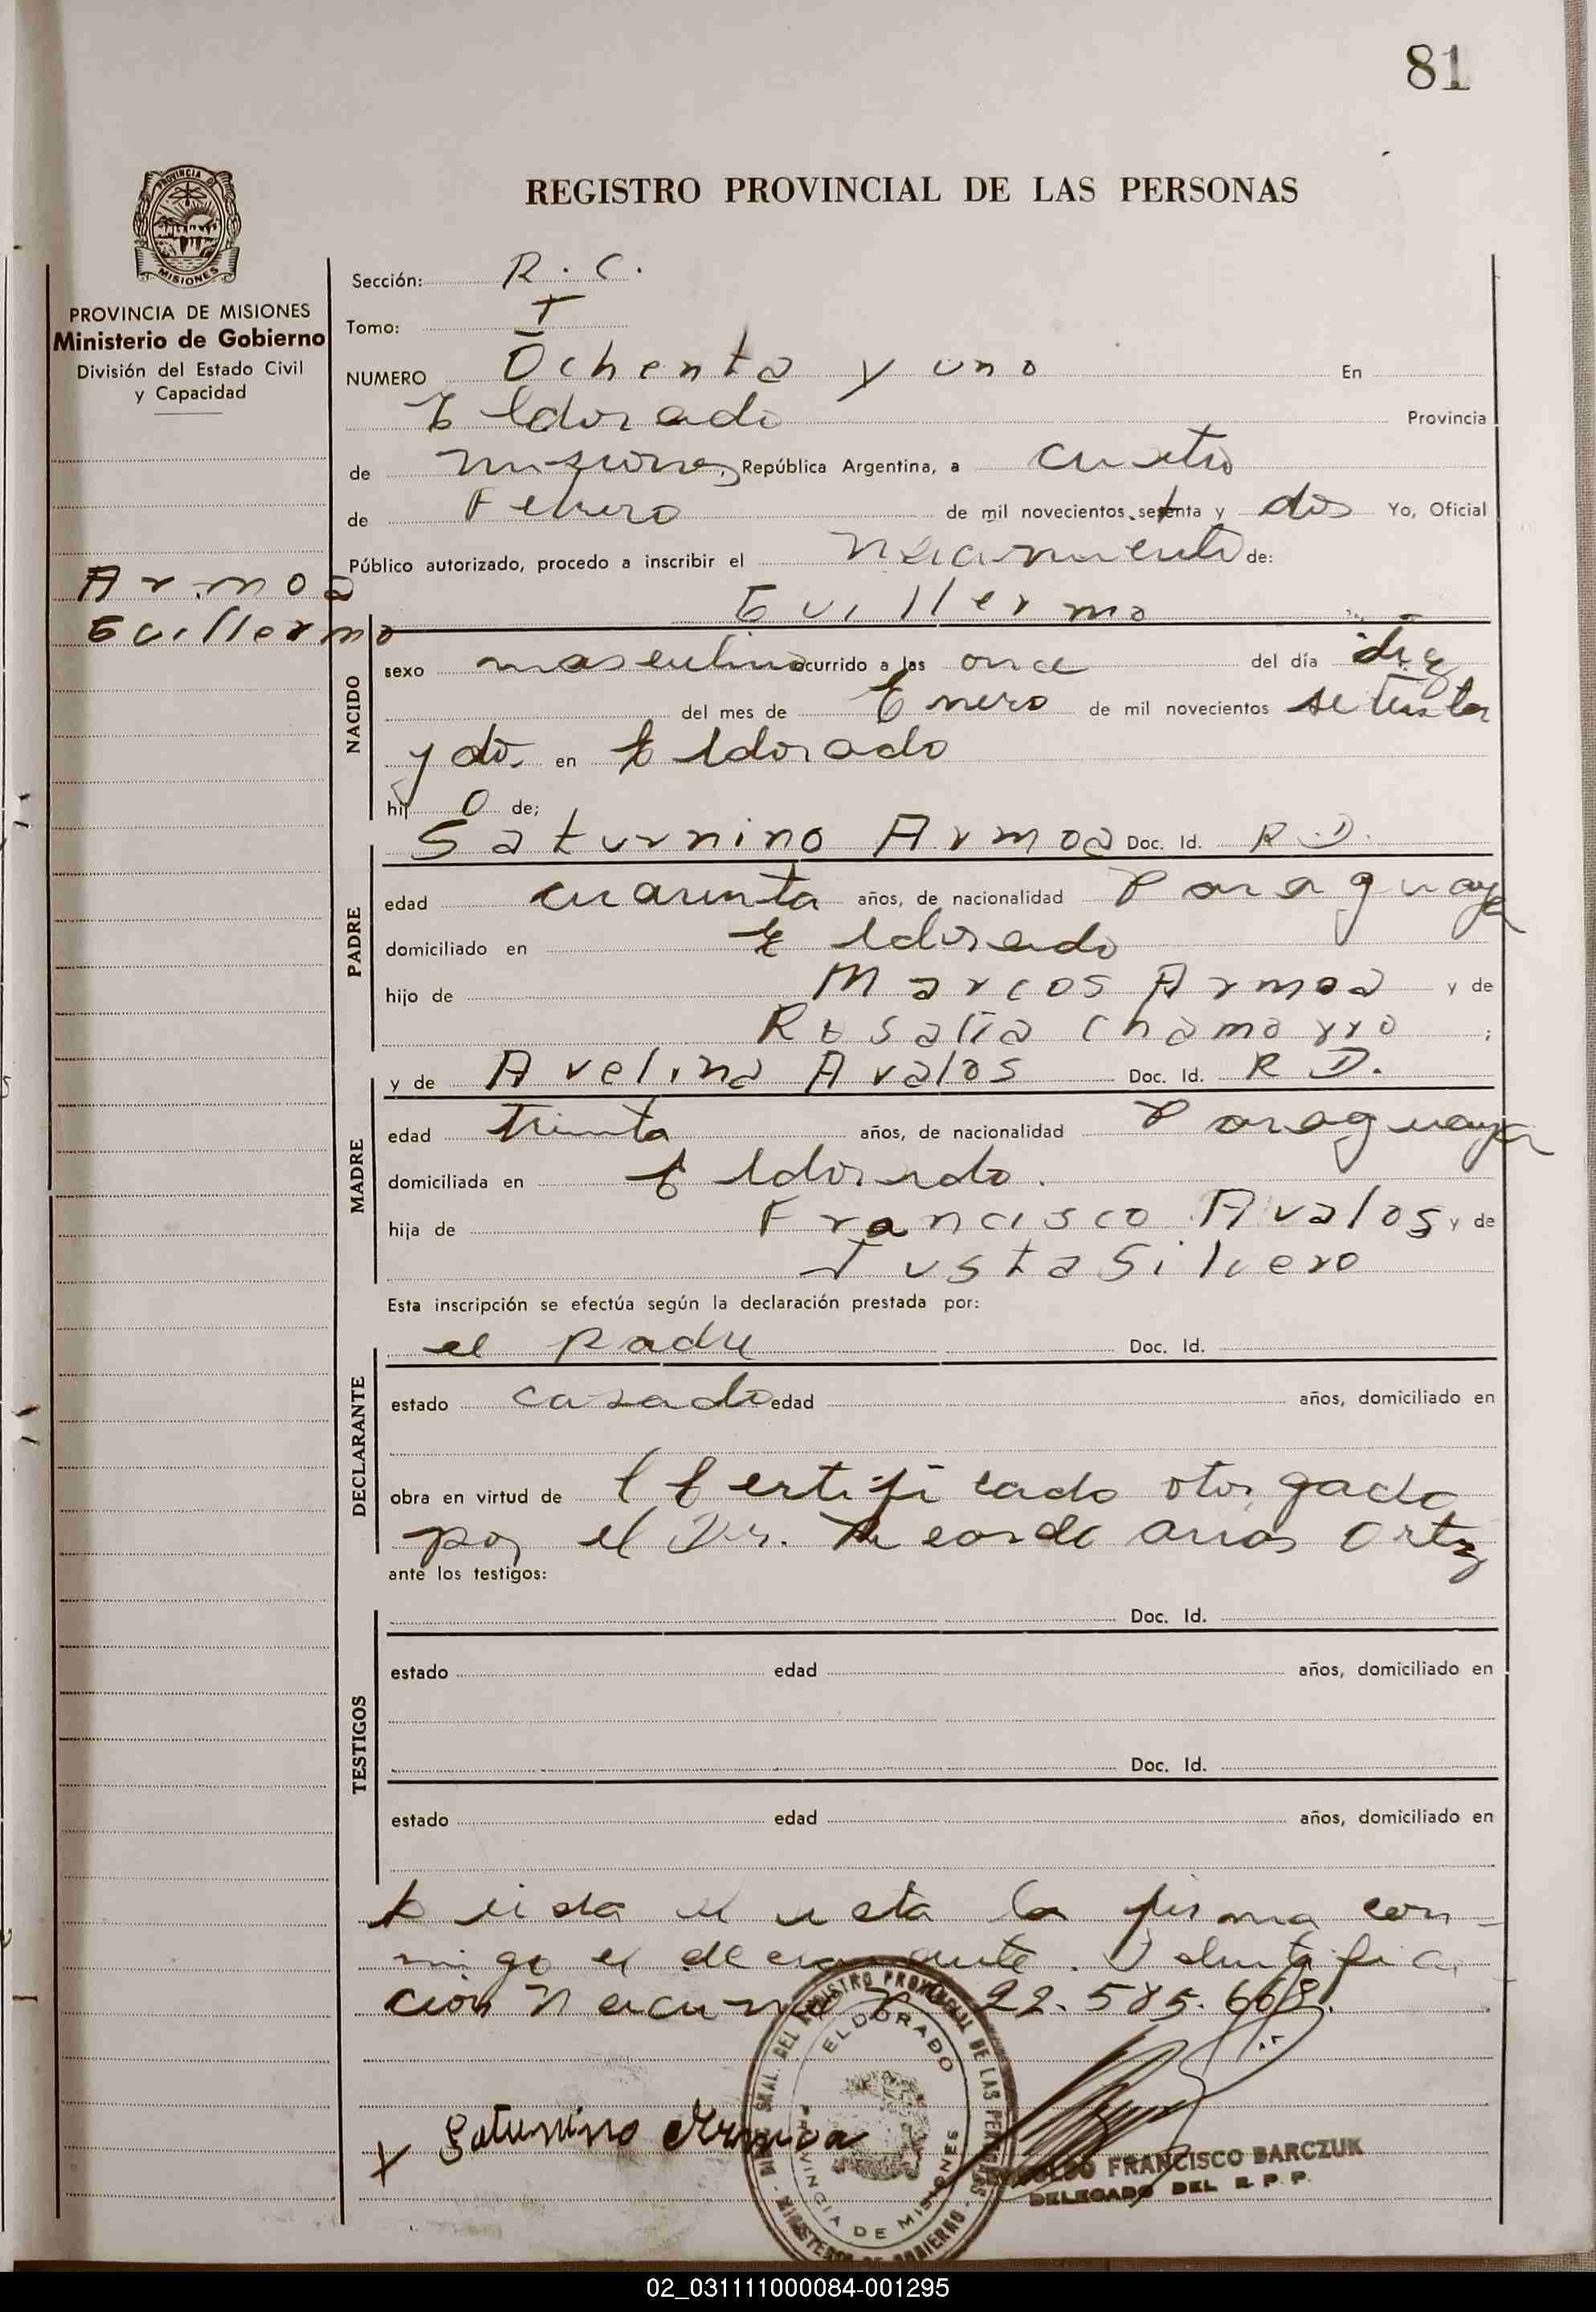 81
REGISTRO PROVINCIAL DE LAS PERSONAS
PROVINCIA DE
MISIONES
PROVINCIA DE MISIONES
Ministerio de Gobierno
División del Estado Civil
y Capacidad
Armoa
Guillermo
Sección: R. C.
Tomo: I
NUMERO Ochenta y uno En
Eldorado Provincia
de Misiones, República Argentina, a cuatro
de Febrero de mil novecientos setenta y dos Yo, Oficial
Público autorizado, procedo a inscribir el nacimiento de:
Guillermo
NACIDO
sexo masculino ocurrido a las once del día diez
del mes de Enero de mil novecientos setenta
y dos en Eldorado
hij o de;
Saturnino Armoa Doc. Id. R D.
PADRE
edad cuarenta años, de nacionalidad Paraguaya
domiciliado en Eldorado
hijo de Marcos Armoa y de
Rosalia Chamorro ;
y de Avelina Avalos Doc. Id. R D.
MADRE
edad treinta años, de nacionalidad Paraguaya
domiciliada en Eldorado.
hija de Francisco Avalos y de
Justa Silvero
Esta inscripción se efectúa según la declaración prestada por:
el padre Doc. Id.
DECLARANTE
estado casado edad años, domiciliado en
obra en virtud de l Certificado otorgado
por el Dr. Ricardo Arias Ortiz
ante los testigos:
Doc. Id.
TESTIGOS
estado edad años, domiciliado en
Doc. Id.
estado edad años, domiciliado en
Leida el acta la firma con-
migo el declarante. Identifica-
ción Nacional N° 22.585.668.
DEL REGISTRO PROVINCIAL DE LAS PERSONAS
ELDORADO
PROVINCIA DE MISIONES
MINISTERIO DE GOBIERNO
x Saturnino Armoa
FRANCISCO BARCZUK
DELEGADO DEL R. P. P.
02_031111000084-001295